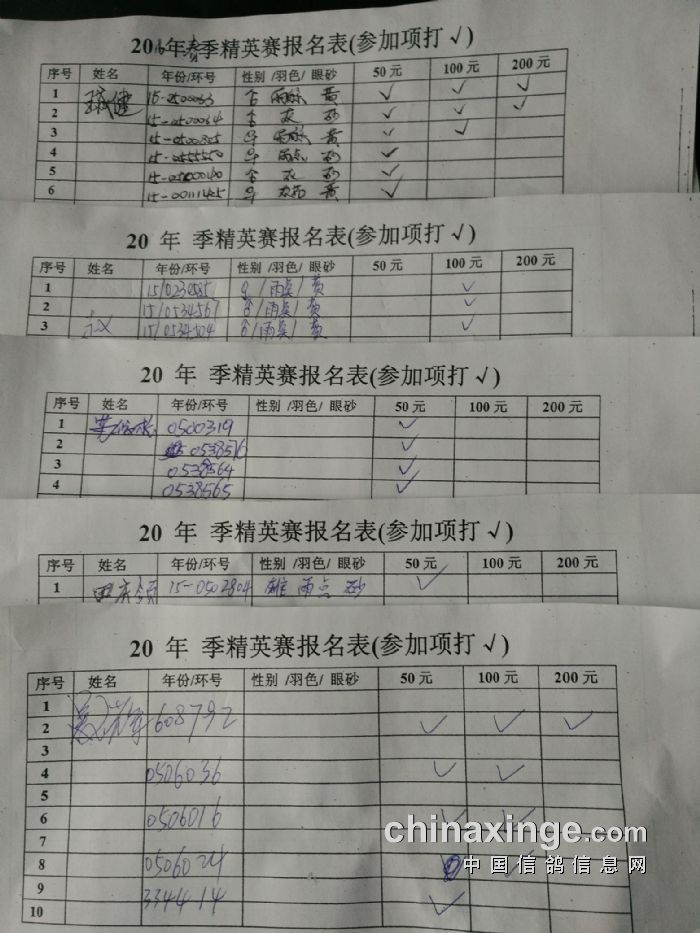 2016年春季精英赛报名表(参加项打√)
序号 姓名 年份/环号 性别 /羽色/ 眼砂 50 元 100 元 200 元
1 15-0500033 雨点 黄 √ √ √
2 15-0500034 灰 砂 √ √ √
3 15-0500305 黄 √ √
4 15-0555550 雨点 砂 √
5 灰 砂 √
6 15-00111425 黄 √
20 年 季精英赛报名表(参加项打√)
序号 姓名 年份/环号 性别 /羽色/ 眼砂 50 元 100 元 200 元
1 15/0234585 /雨点/ 黄 √
2 15/0534567 /雨点/ 黄 √
3 15/0534504 /雨点/ 黄 √
20 年 季精英赛报名表(参加项打√)
序号 姓名 年份/环号 性别 /羽色/ 眼砂 50 元 100 元 200 元
1 0500319 √
2 0538576 √
3 0538564 √
4 0538565 √
20 年 季精英赛报名表(参加项打√)
序号 姓名 年份/环号 性别 /羽色/ 眼砂 50 元 100 元 200 元
1 田庆领 15-0502804 雄 雨点 砂 √
20 年 季精英赛报名表(参加项打√)
序号 姓名 年份/环号 性别 /羽色/ 眼砂 50 元 100 元 200 元
1
2 608792 √ √ √
3
4 0506036 √ √
5
6 0506016 √ √
7
8 0506024 √
9 334414 √
10
chinaxinge.com
中国信鸽信息网